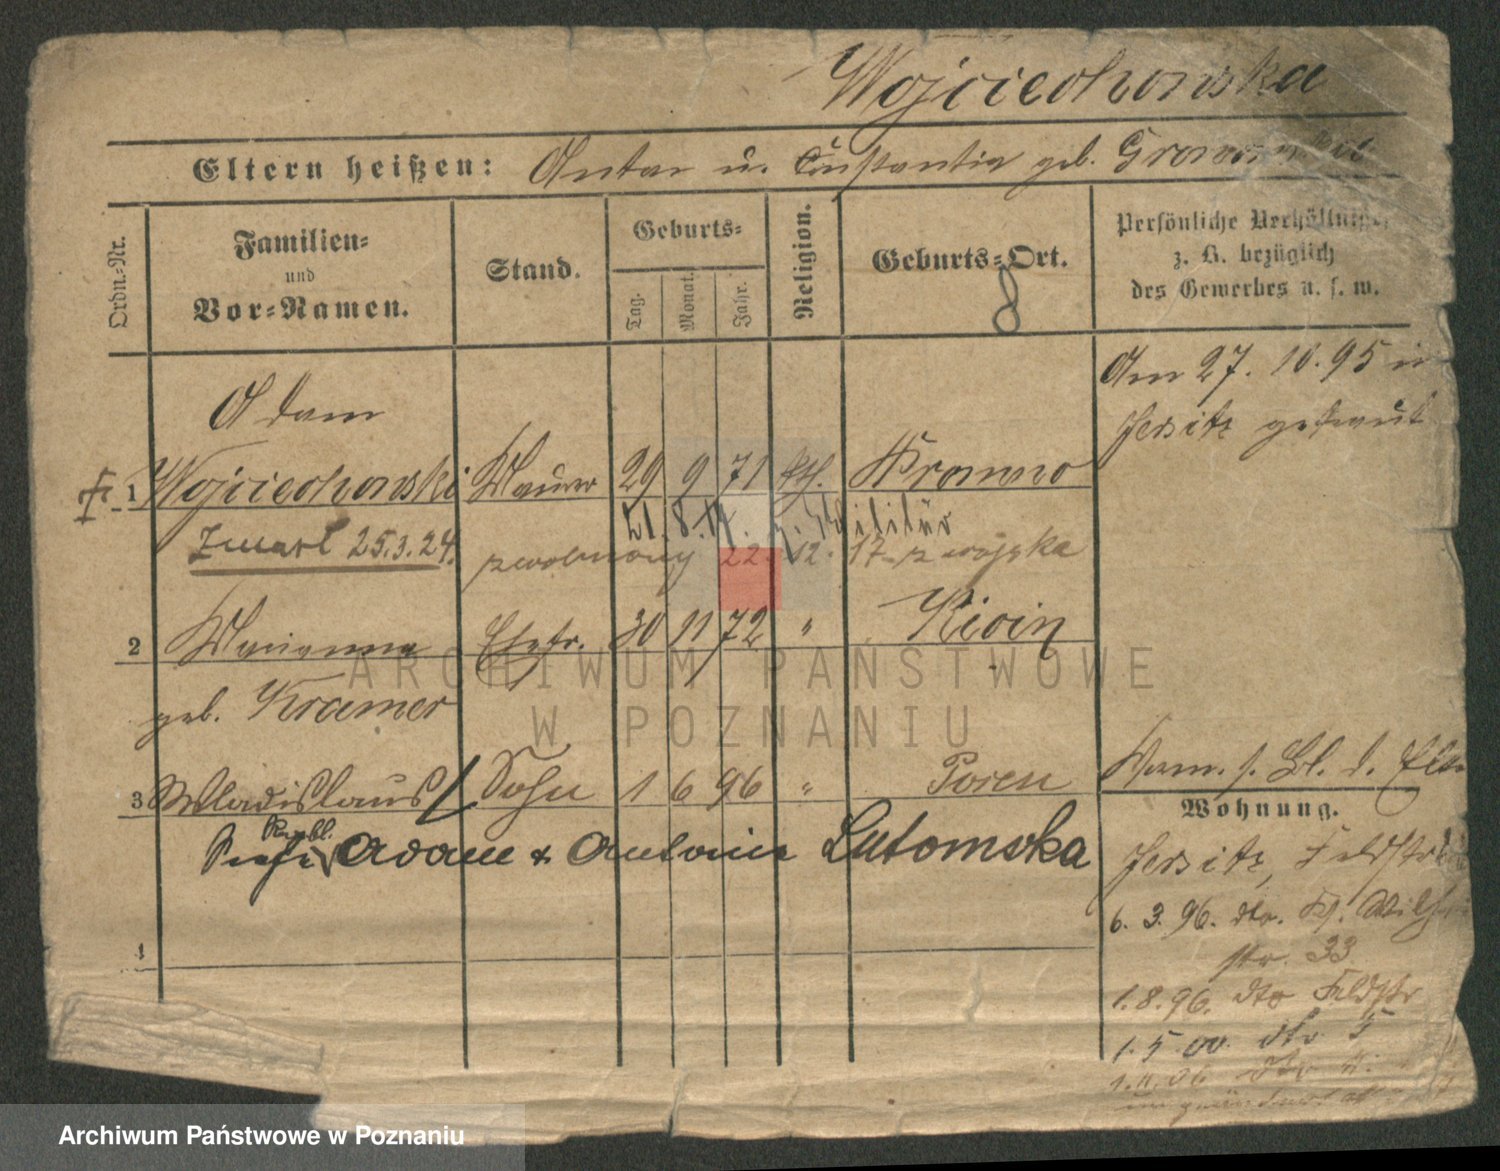 Wojciechowska
Eltern heißen: Anton u. Constantia geb.
Ordn.-Nr.
Familien-
und
Vor-Namen.
Stand.
Geburts-
Tag. Monat. Jahr.
Religion.
Geburts-Ort.
8
Persönliche Verhältnisse,
z. B. bezüglich
des Gewerbes u. s. w.
Am 27. 10. 95 in
Jersitz getraut
Adam
1 Wojciechowski Maurer 29 9 71 kth. Kromno
Lt. 8. z. Militär
Zmarł 25.3.24. zwolniony 22. 12. 17 z wojska
2 Marianna Ehefr. 30 11 72 " Kicin
geb. Kramer
3 Wladislaus Sohn 1 6 96 " Posen
Adam + Antonie Lutomska
4
Wohnung.
Jersitz, Feldstr
6. 3. 96. dto.
str. 33
1. 8. 96. dto Feldstr
1. 5. 00. dto 5
ARCHIWUM PAŃSTWOWE
W POZNANIU
Archiwum Państwowe w Poznaniu